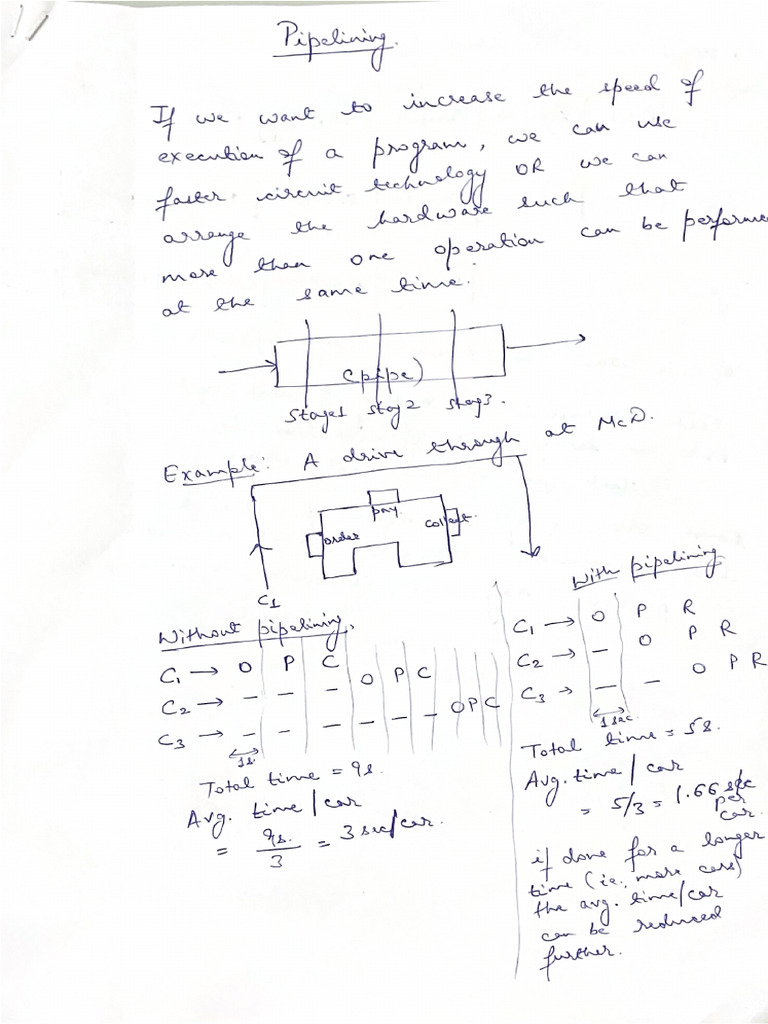 Pipelining.
If we want to increase the speed of
execution of a program, we can use
faster circuit technology OR we can
arrange the hardware such that
more than one operation can be performe
at the same time.
(pipe)
Stage1 stag2 stag3.
Example: A drive through at McD.
pay
order
collect.
C1
Without pipelining.
C1 → O P C
C2 → - - - O P C
C3 → - - - - - - O P C
1s.
Total time = 9s.
Avg. time/car
= 9s./3 = 3 sec/car.
With pipelining
C1 → O P R
C2 → - O P R
C3 → - - O P R
1 sec.
Total time = 5s.
Avg. time/car
= 5/3 = 1.66 sec
per
car.
if done for a longer
time (ie., more cars)
the avg. time/car
can be reduced
further.